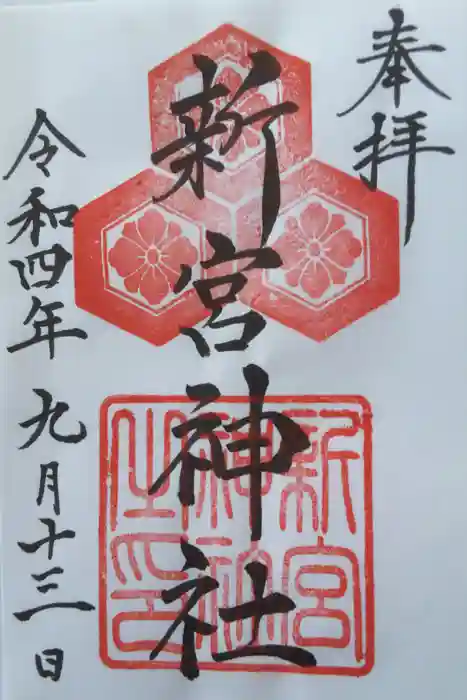 奉拝
新宮神社
令和四年 九月十三日
新宮
神社
之印